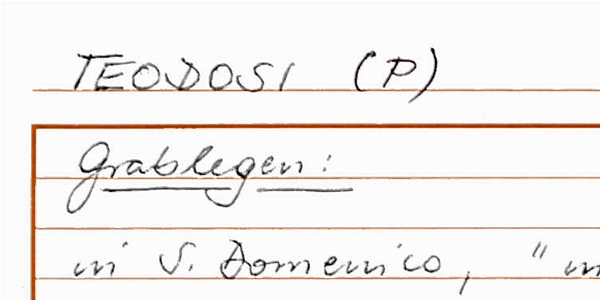 TEODOSI (P)
Grablegen:
in S. Domenico, "in